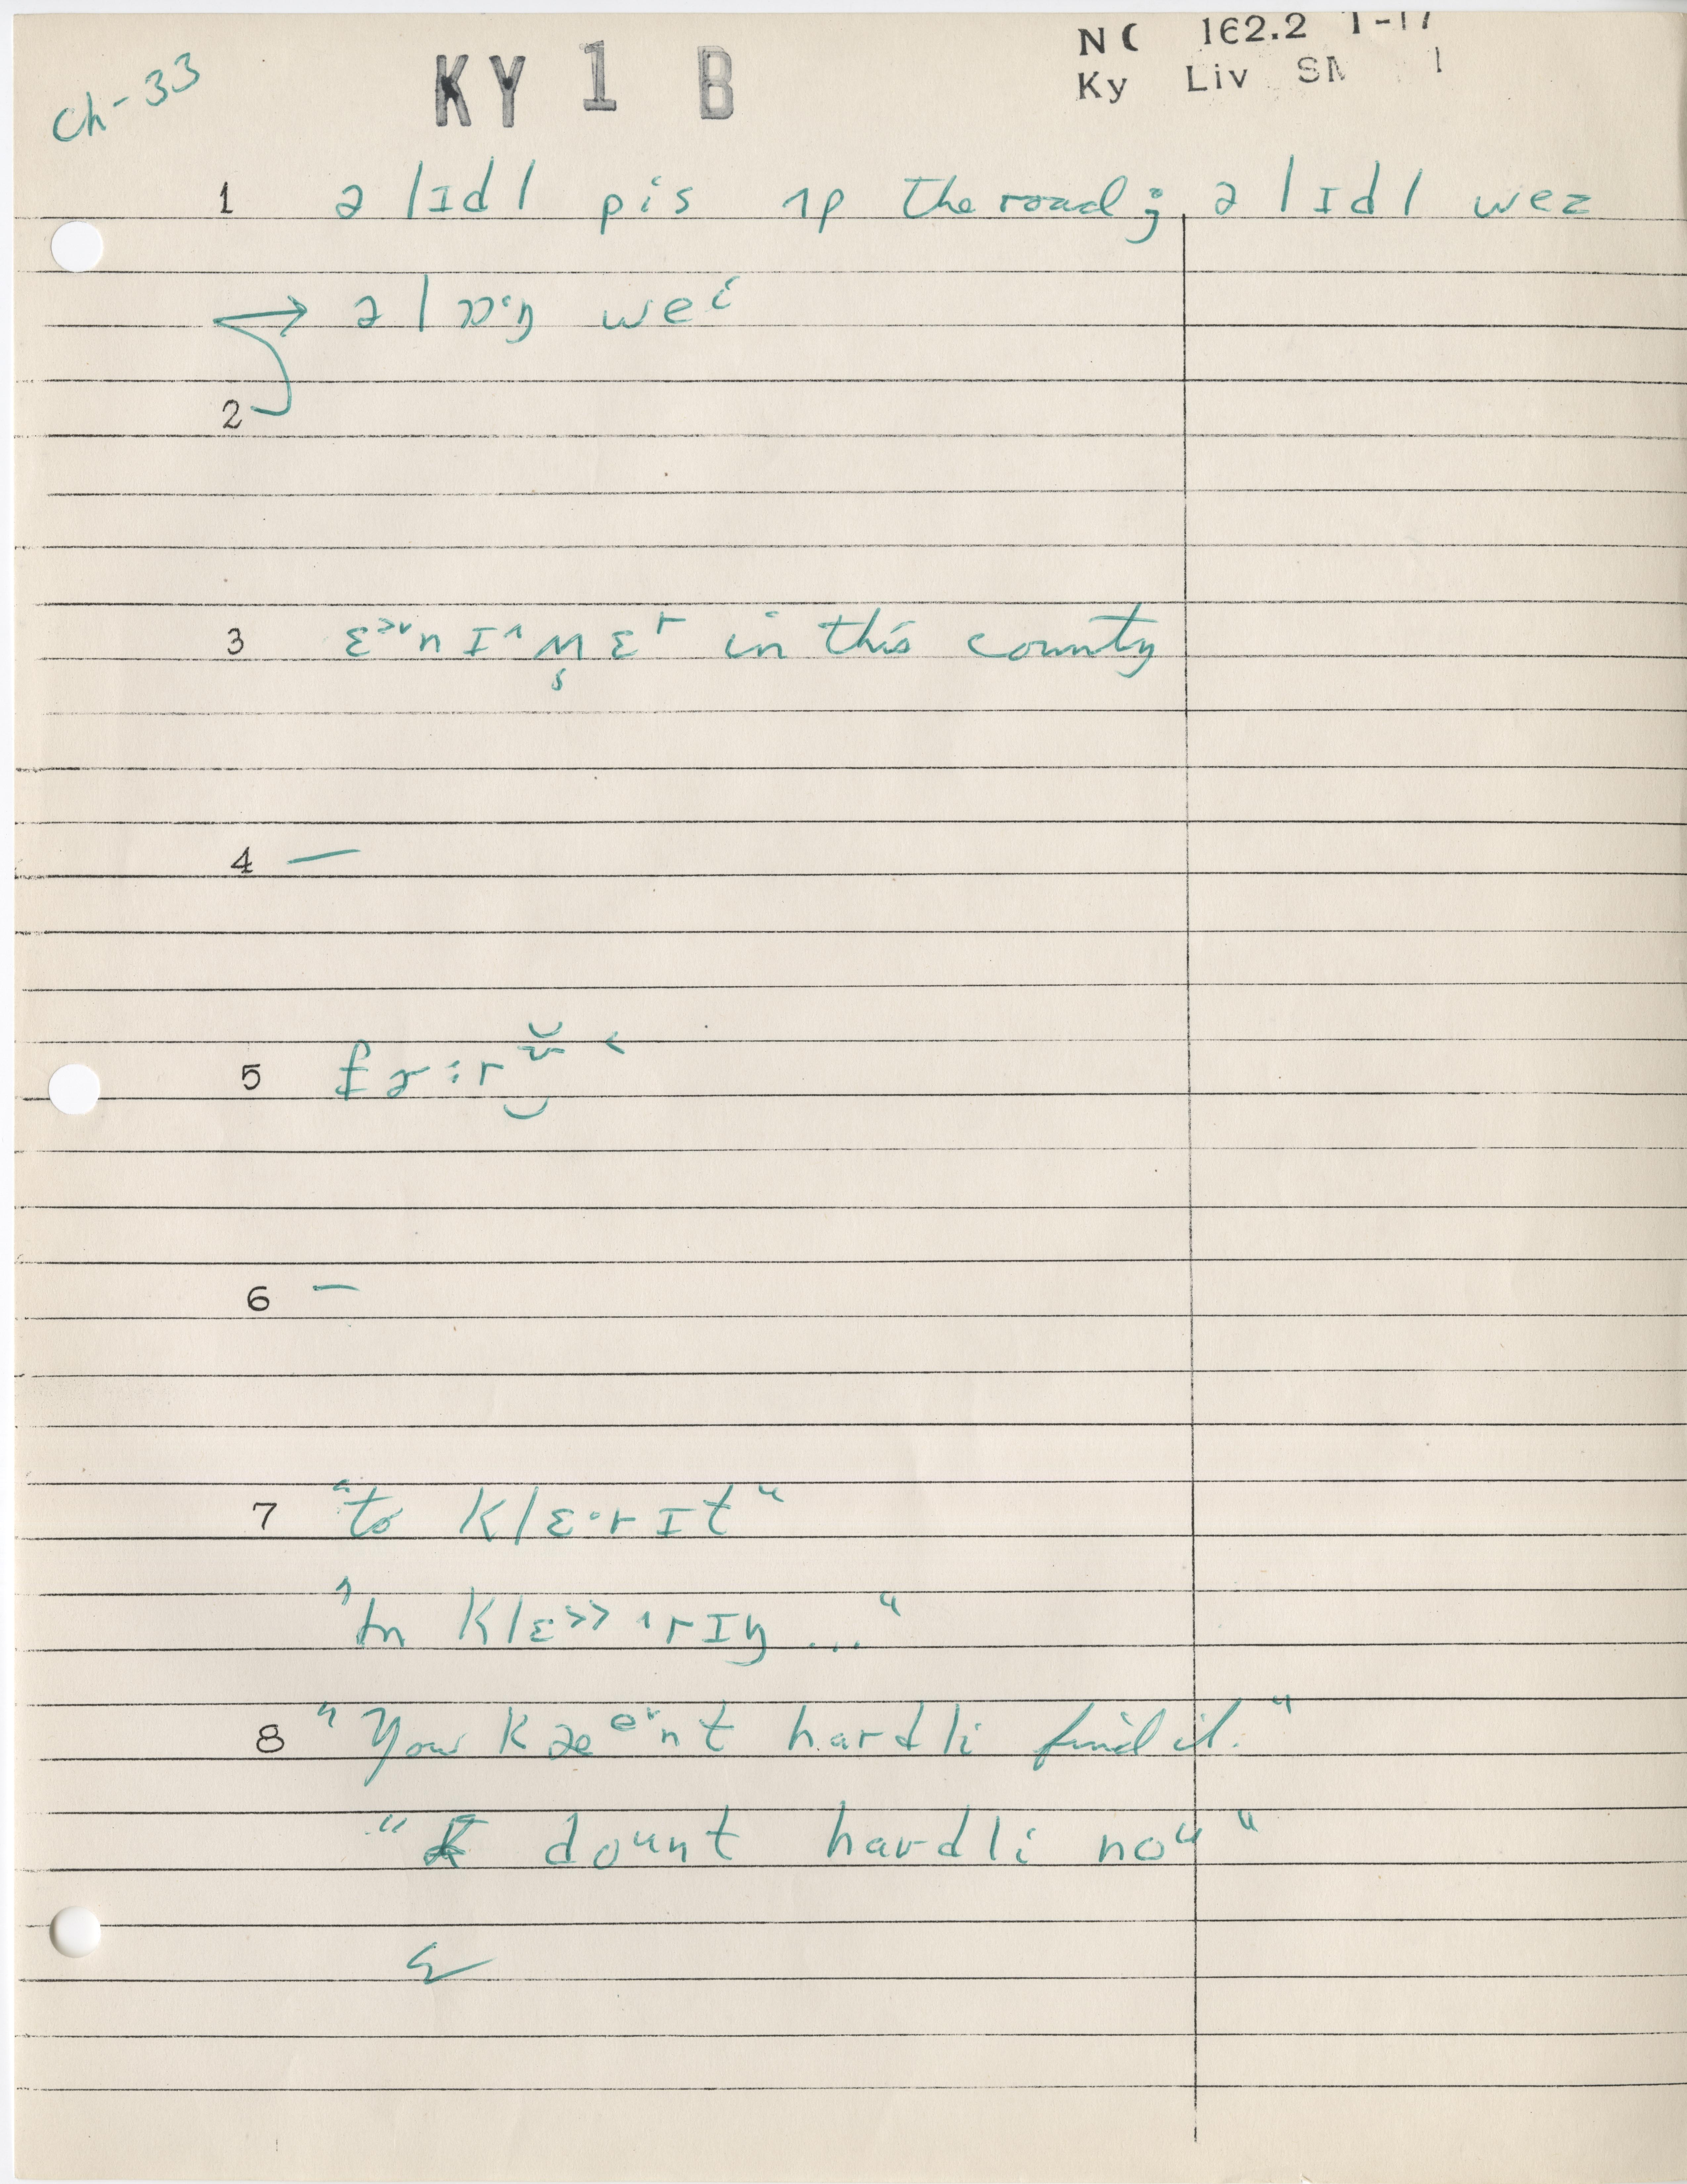 ch-33
KY 1 B
162.2 1-17
Ky Liv
1 ə lɪdl pis ʌp the road; ə lɪdl wez
→ ə lɒˑŋ weⁱ
2
3 in this county
4 —
5
6 —
7 "to klɛˑr ɪt"
"In klɛ>>ˑrɪŋ ..."
8 "You kæᵊˑnt hardli find it."
"I doᵘnt hardli noᵘ"